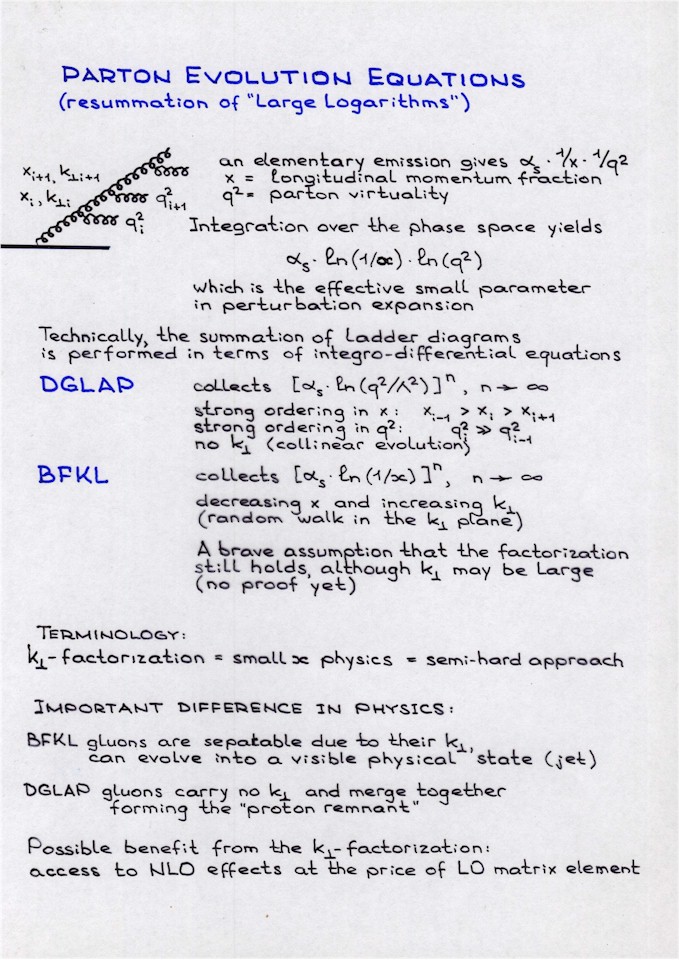 PARTON EVOLUTION EQUATIONS
(resummation of "Large Logarithms")
x_{i+1}, k_{⊥i+1}
x_i, k_{⊥i}
q²_{i+1}
q²_i
an elementary emission gives α_s · 1/x · 1/q²
x = longitudinal momentum fraction
q² = parton virtuality
Integration over the phase space yields
α_s · ln(1/x) · ln(q²)
which is the effective small parameter
in perturbation expansion
Technically, the summation of ladder diagrams
is performed in terms of integro-differential equations
DGLAP collects [α_s · ln(q²/Λ²)]ⁿ, n → ∞
strong ordering in x: x_{i-1} > x_i > x_{i+1}
strong ordering in q²: q²_i ≫ q²_{i-1}
no k_⊥ (collinear evolution)
BFKL collects [α_s · ln(1/x)]ⁿ, n → ∞
decreasing x and increasing k_⊥
(random walk in the k_⊥ plane)
A brave assumption that the factorization
still holds, although k_⊥ may be large
(no proof yet)
TERMINOLOGY:
k_⊥-factorization = small x physics = semi-hard approach
IMPORTANT DIFFERENCE IN PHYSICS:
BFKL gluons are sepatable due to their k_⊥,
can evolve into a visible physical state (jet)
DGLAP gluons carry no k_⊥ and merge together
forming the "proton remnant"
Possible benefit from the k_⊥-factorization:
access to NLO effects at the price of LO matrix element